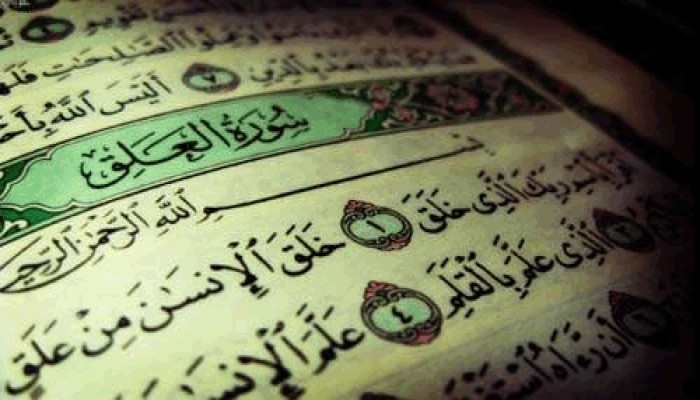 ٱلصَّٰلِحَٰتِ فَلَهُمْ
بِٱلدِّينِ ٧ أَلَيْسَ ٱللَّهُ بِأَحْ
سُورَةُ ٱلْعَلَقِ
بِسْمِ ٱللَّهِ ٱلرَّحْمَٰنِ ٱلرَّحِيمِ
ٱقْرَأْ بِٱسْمِ رَبِّكَ ٱلَّذِى خَلَقَ ١ خَلَقَ ٱلْإِنسَٰنَ مِنْ عَلَقٍ
ٱلَّذِى عَلَّمَ بِٱلْقَلَمِ ٤ عَلَّمَ ٱلْإِنسَٰنَ
أَن رَّءَاهُ ٱسْتَغْنَىٰ